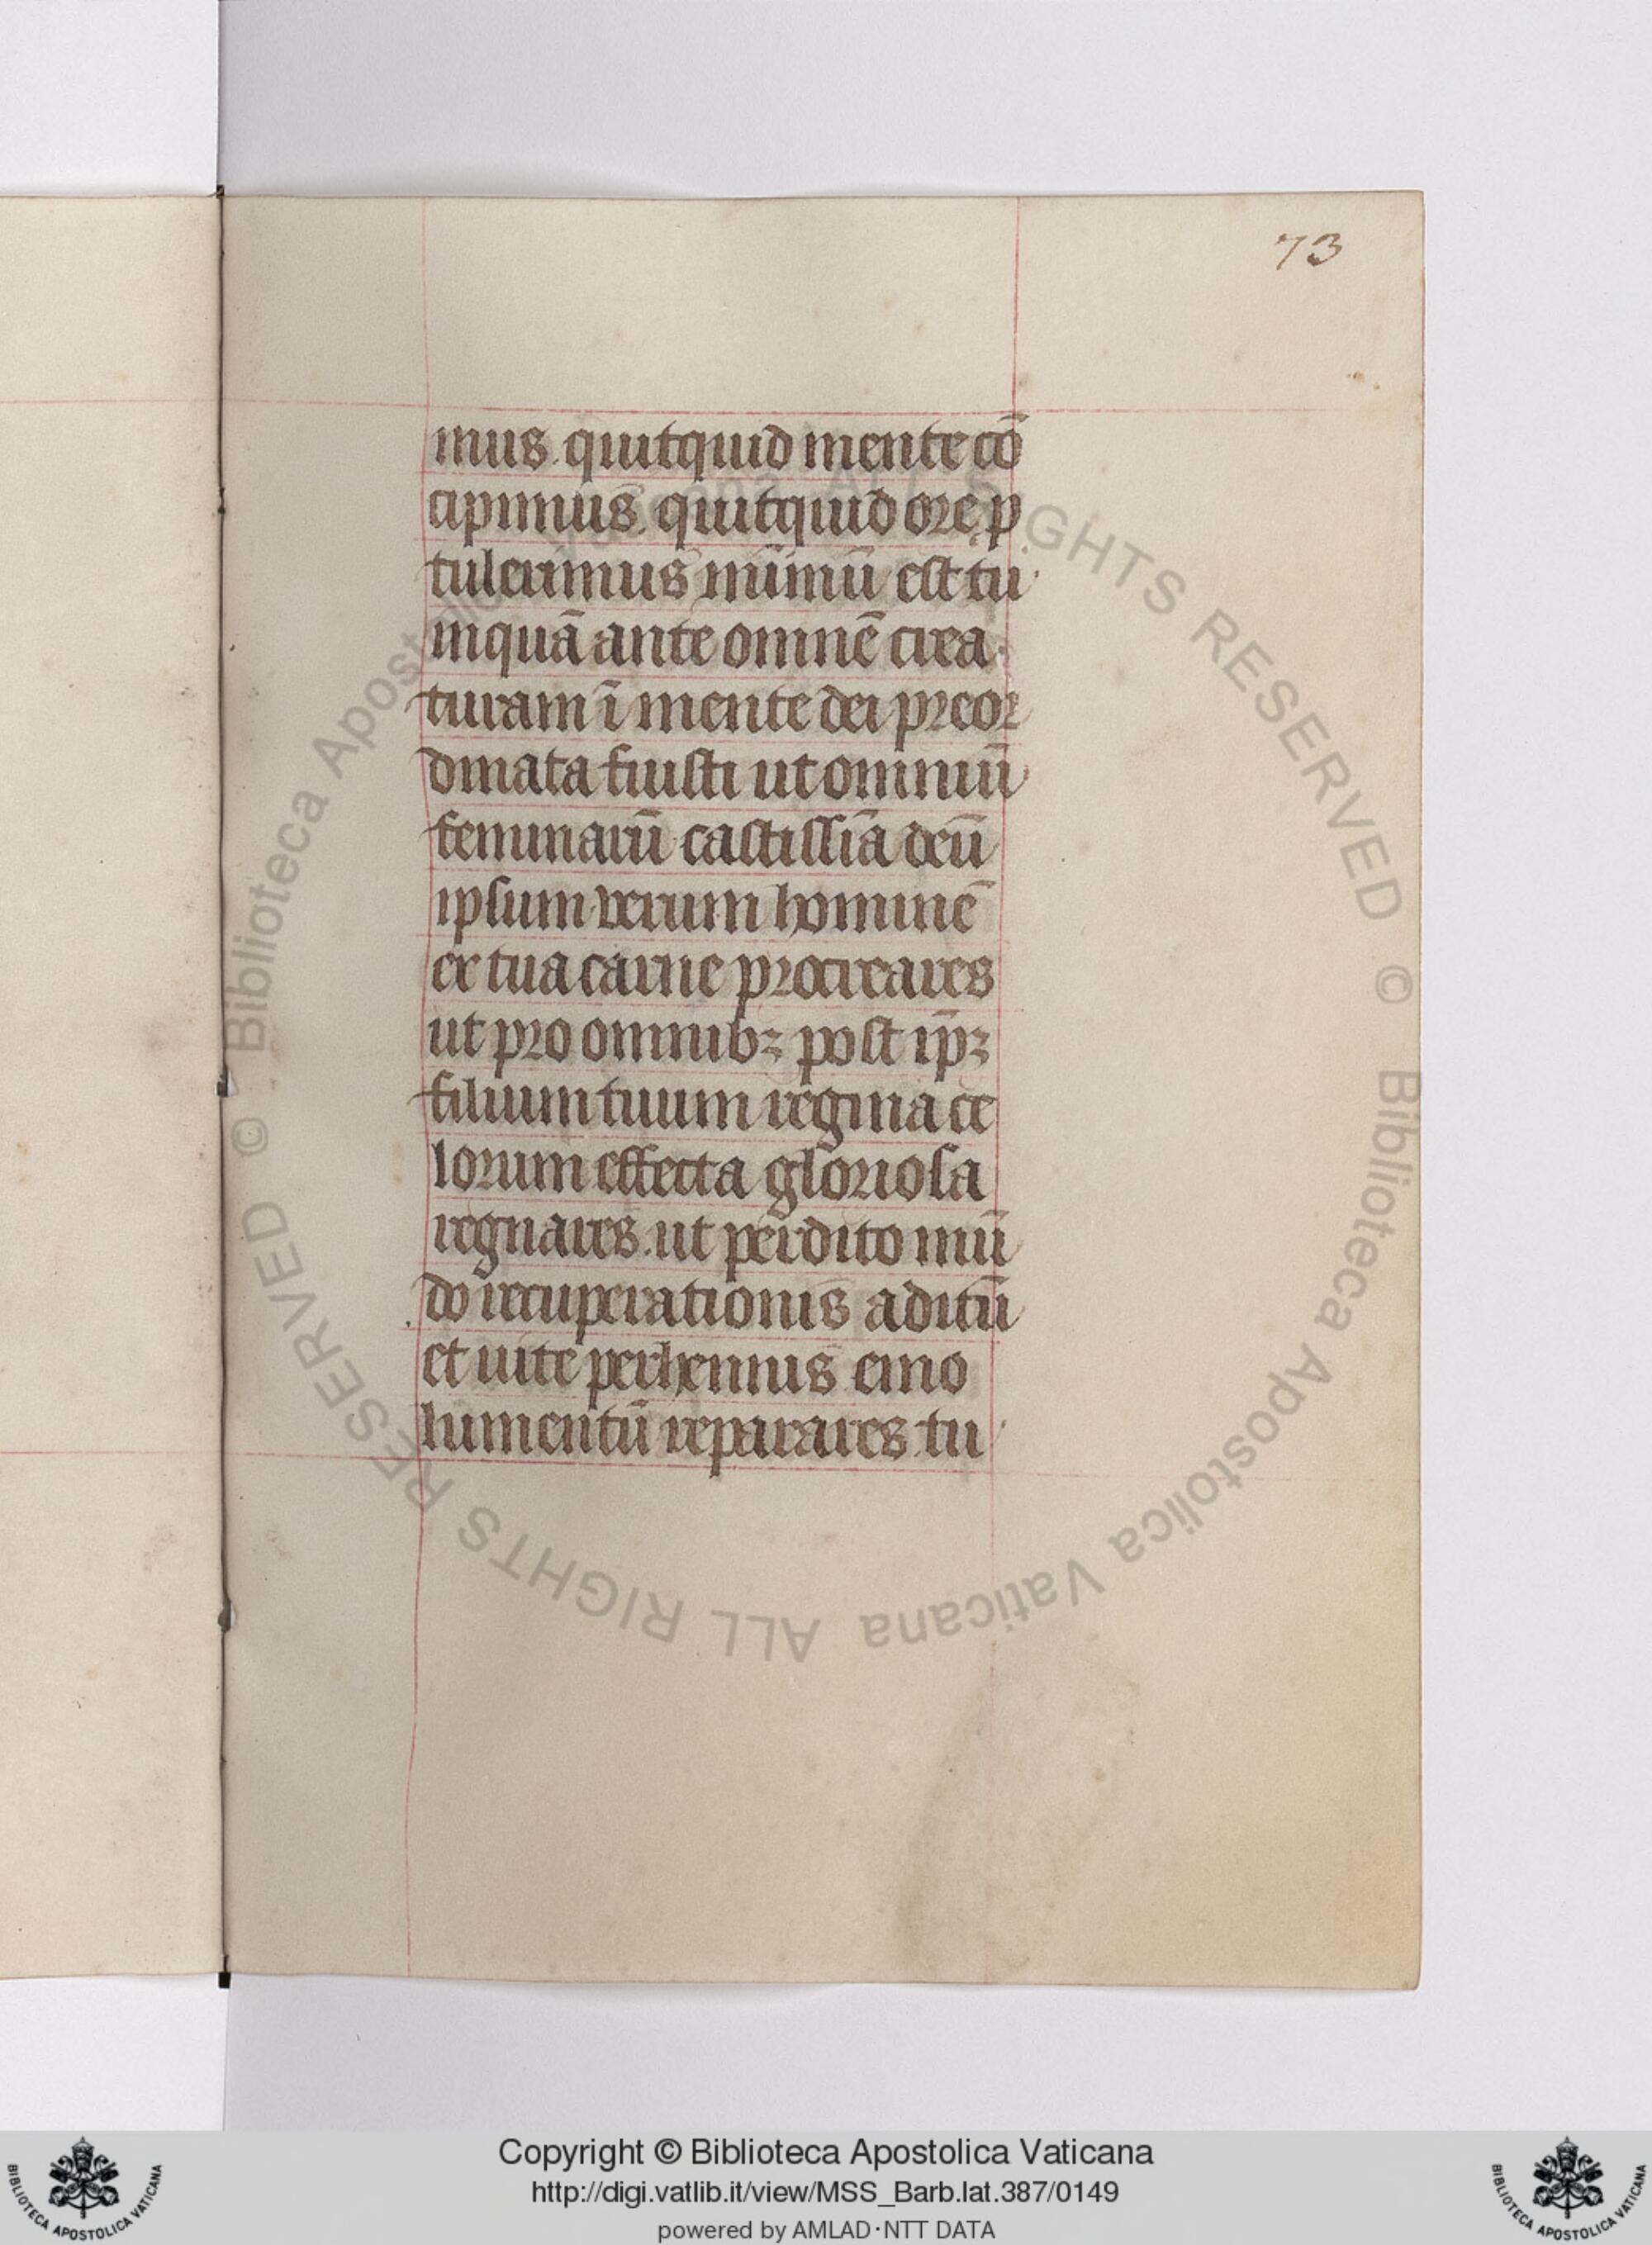 73
mus. quitquid mente cō
cipimus. quitquid ore p
tulerimus minimū est tu
inquā ante omnē crea
turam ī mente dei preor
dinata fuisti ut omniū
feminarū castissīa deū
ipsum verum hominē
ex tua carne procreares
ut pro omnibꝫ post ip̄ꝫ
filium tuum regina ce
lorum effecta gloriosa
regnares. ut perdito mū
do recuperationis aditū
et uite perhennis emo
lumentū reparares. tu
© Biblioteca Apostolica Vaticana ALL RIGHTS RESERVED © Biblioteca Apostolica Vaticana ALL RIGHTS RESERVED
Copyright © Biblioteca Apostolica Vaticana
http://digi.vatlib.it/view/MSS_Barb.lat.387/0149
powered by AMLAD·NTT DATA
BIBLIOTECA APOSTOLICA VATICANA
BIBLIOTECA APOSTOLICA VATICANA